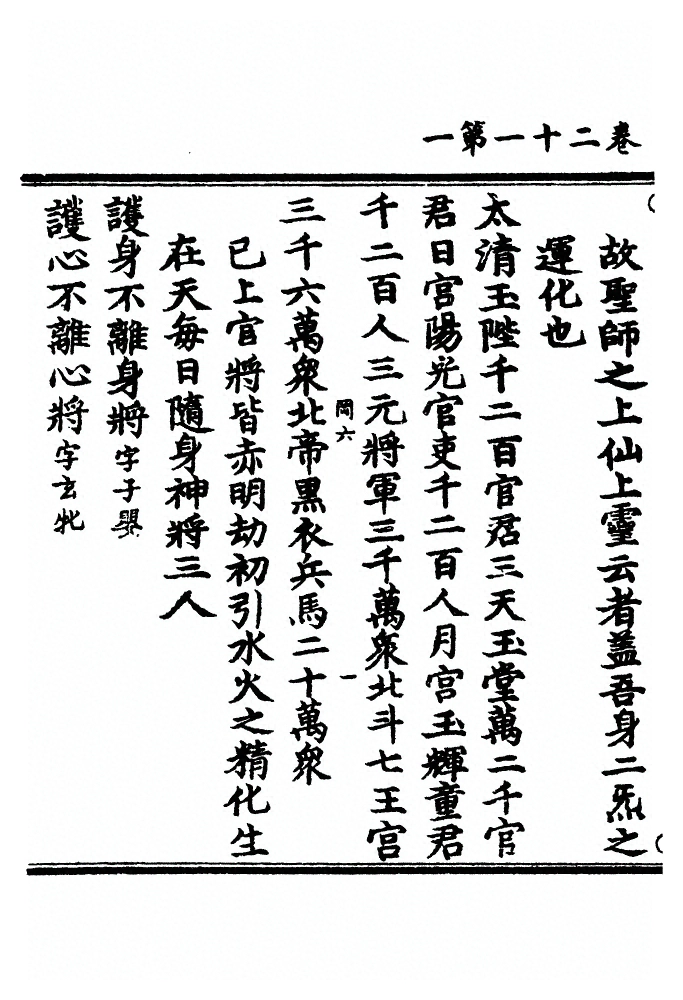 卷二十一第一
故聖師之上仙上靈云者盖吾身二炁之
運化也
太清玉陛千二百官君三天玉堂萬二千官
君日宫陽光官吏千二百人月宫玉輝童君
千二百人三元將軍三千萬衆北斗七王宫
岡六　一
三千六萬衆北帝黒衣兵馬二十萬衆
已上官將皆赤明劫初引水火之精化生
在天每日隨身神將三人
護身不離身將字子嬰
護心不離心將字玄牝